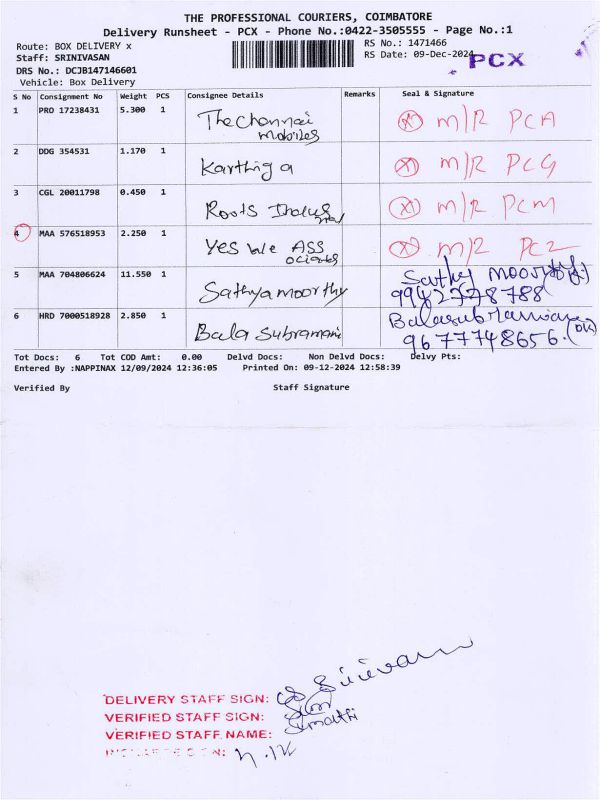 THE PROFESSIONAL COURIERS, COIMBATORE
Delivery Runsheet - PCX - Phone No.:0422-3505555 - Page No.:1
Route: BOX DELIVERY x
Staff: SRINIVASAN
RS No.: 1471466
RS Date: 09-Dec-2024
PCX
DRS No.: DCJB147146601
Vehicle: Box Delivery
S No Consignment No Weight PCS Consignee Details Remarks Seal & Signature
1 PRO 17238431 5.300 1 The Chennai mobiles (X) M/R PCA
2 DDG 354531 1.170 1 Karthig a (X) M/R PCG
3 CGL 20011798 0.450 1 Roots (X) M/R PCM
4 MAA 576518953 2.250 1 Yes We ASS ociates (X) M/R PCZ
5 MAA 704806624 11.550 1 Sathyamoorthy Sathy
9942778788
6 HRD 7000518928 2.850 1 Bala Subramani
9677748656.
Tot Docs: 6 Tot COD Amt: 0.00 Delvd Docs: Non Delvd Docs: Delvy Pts:
Entered By :NAPPINAX 12/09/2024 12:36:05 Printed On: 09-12-2024 12:58:39
Verified By Staff Signature
DELIVERY STAFF SIGN:
VERIFIED STAFF SIGN:
VERIFIED STAFF NAME: Sumathi